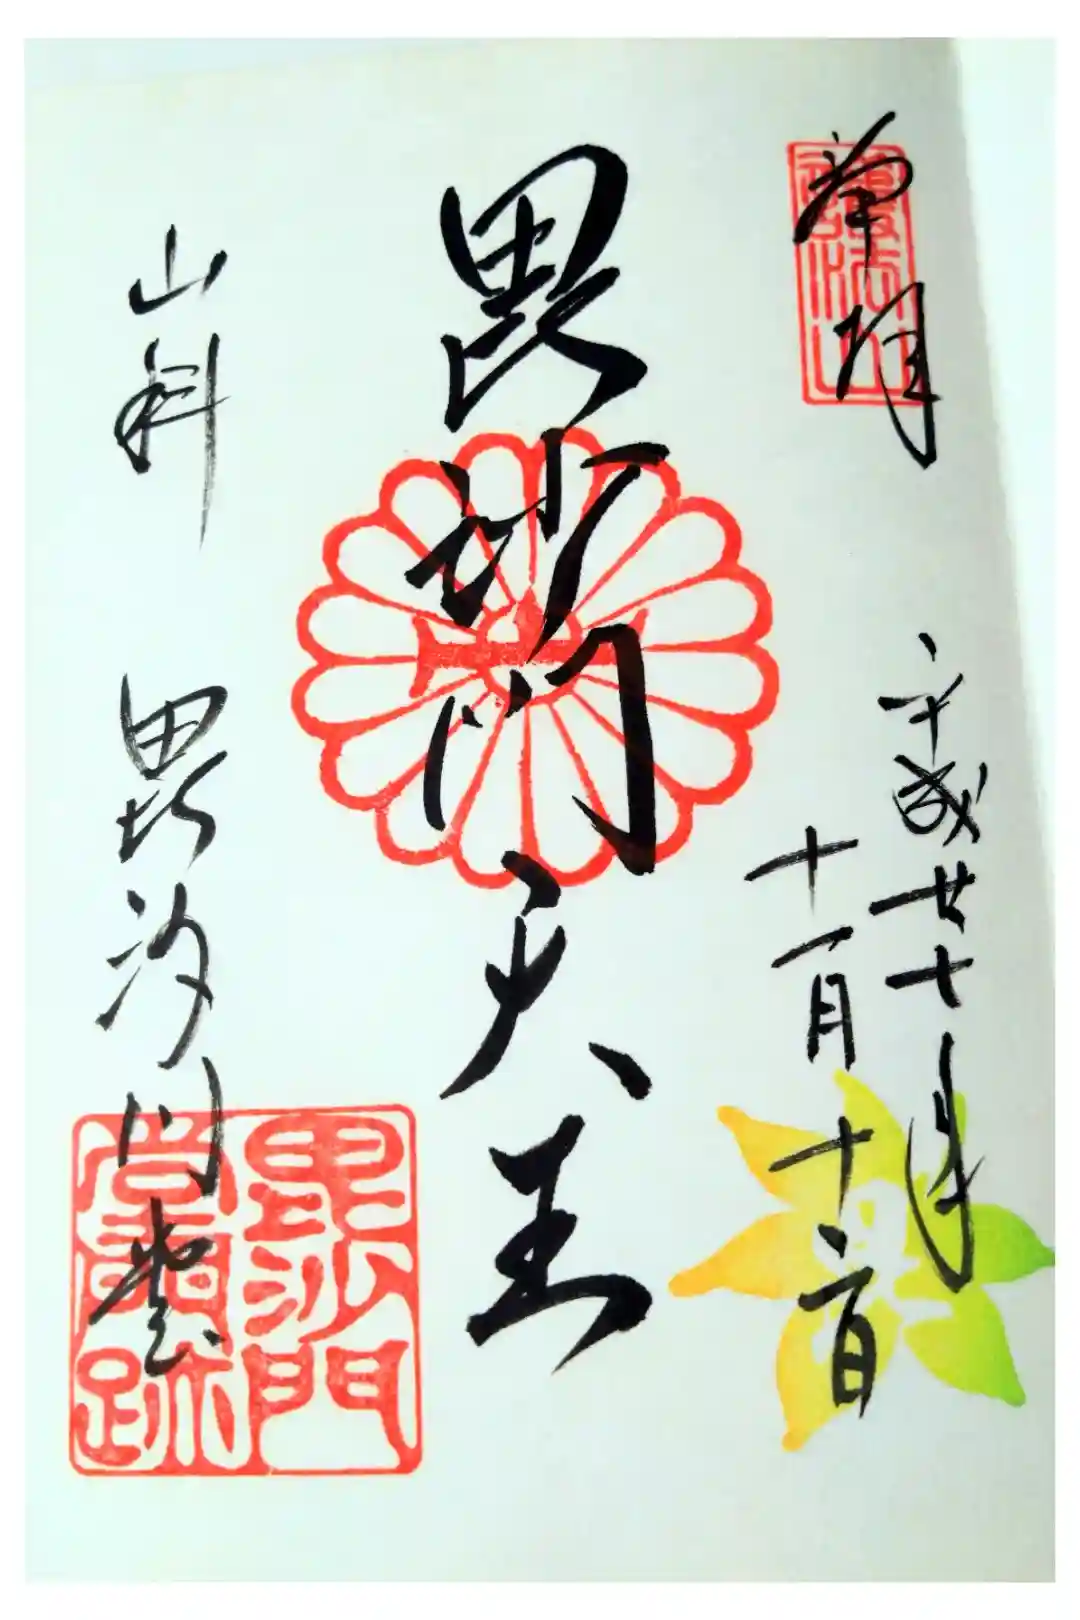 奉拝
護法山
平成廿七年
十一月十二日
毘沙門天王
山科
毘沙門堂
毘沙門
堂門跡